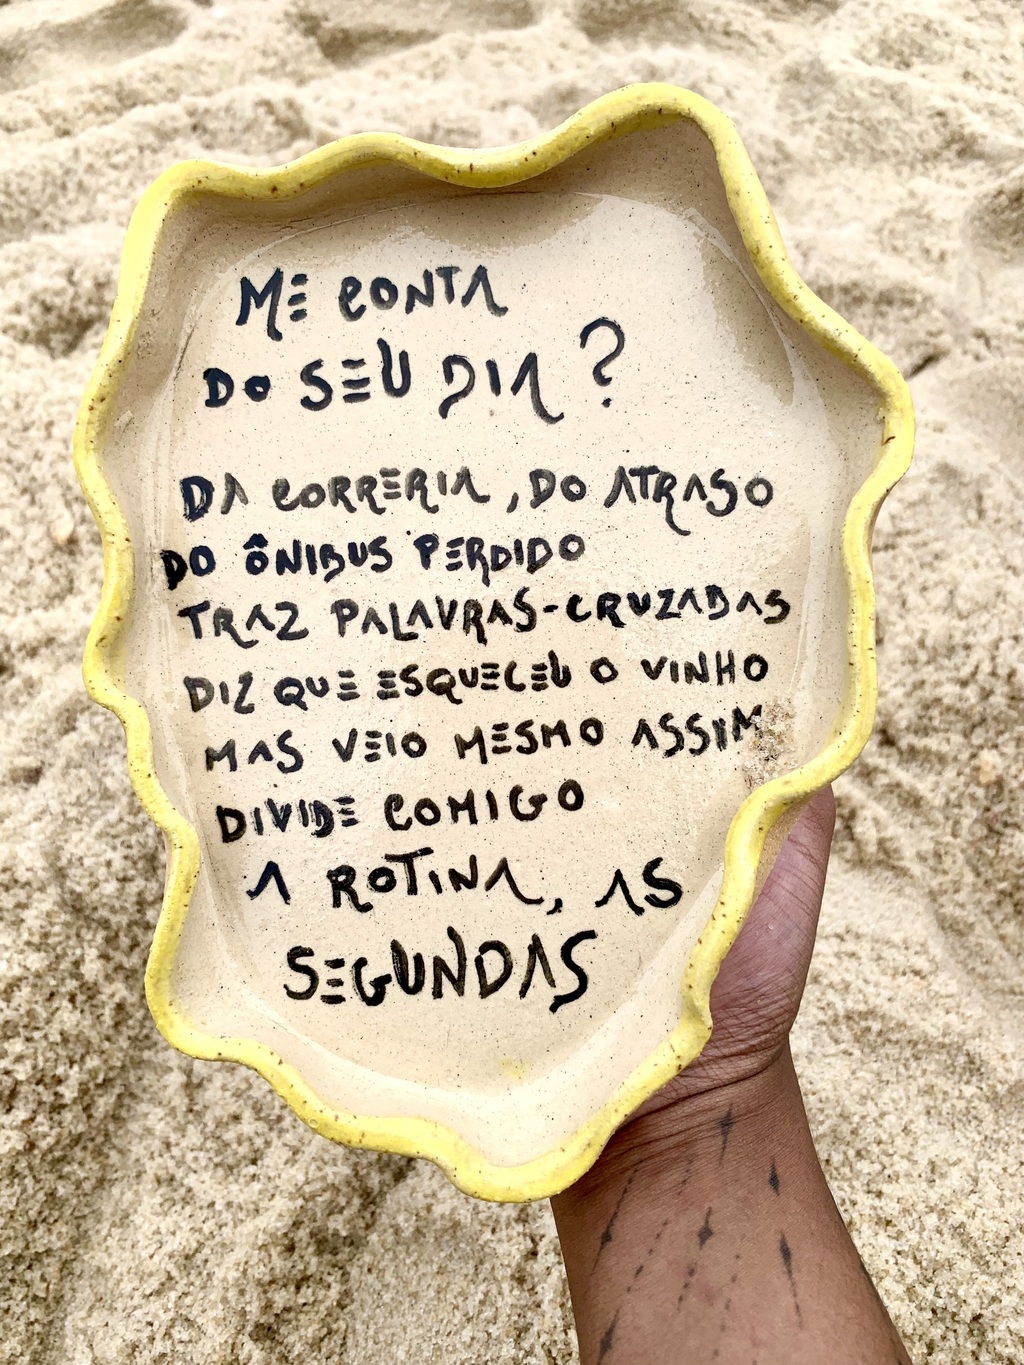 ME CONTA
DO SEU DIA?
DA CORRERIA, DO ATRASO
DO ÔNIBUS PERDIDO
TRAZ PALAVRAS-CRUZADAS
DIZ QUE ESQUECEU O VINHO
MAS VEIO MESMO ASSIM
DIVIDE COMIGO
A ROTINA, AS
SEGUNDAS